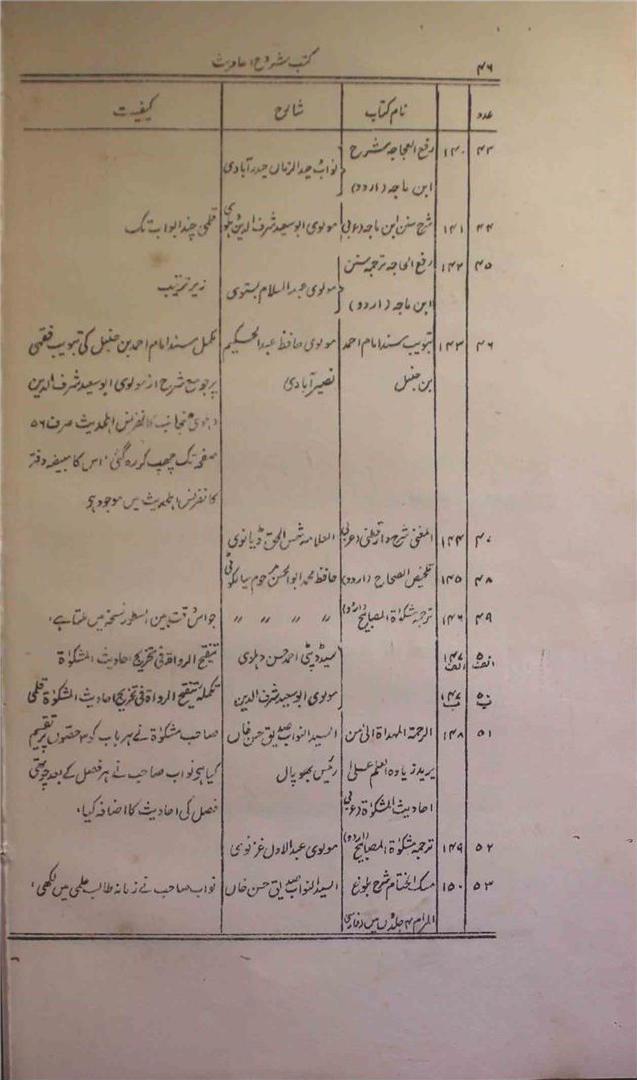 ۴۶ کتب شروح احادیث
عدد نام کتاب شارح کیفیت
۴۳ ۱۴۰ رفع العجاجہ شرح
ابن ماجہ (اردو) نواب وحید الزماں حیدرآبادی
۴۴ ۱۴۱ شرح سنن ابن ماجہ (عربی) مولوی ابوسعید شرف الدین دہلوی قلمی چند ابواب تک
۴۵ ۱۴۲ رفع الحاجہ ترجمہ سنن
ابن ماجہ (اردو) مولوی عبدالسلام بستوی زیر ترتیب
۴۶ ۱۴۳ تبویب مسند امام احمد مولوی حافظ عبدالحکیم مکمل مسند امام احمد بن حنبل کی تبویب فقہی
بن حنبل نصیرآبادی پر جو مع شرح از مولوی ابوسعید شرف الدین
دہلوی منجانب کانفرنس اہلحدیث صرف ۵۶
صفحہ تک چھپ کر رہ گئی، اس کا مبیضہ دفتر
کانفرنس اہلحدیث میں موجود ہو
۴۷ ۱۴۴ المغنی شرح دارقطنی (عربی) العلامہ شمس الحق ڈیانوی
۴۸ ۱۴۵ تلخیص الصحاح (اردو) حافظ محمد ابوالحسن مرحوم سیالکوٹی
۴۹ ۱۴۶ ترجمہ مشکوٰۃ المصابیح (اردو) 〃 〃 〃 〃 جو اس وقت بین السطور نسخہ میں ملتا ہے،
۵۰ الف ۱۴۷ الف سید ڈپٹی احمد حسن دہلوی تنقیح الرواۃ فی تخریج احادیث المشکوٰۃ
۵۰ ب ۱۴۷ ب مولوی ابوسعید شرف الدین تکملہ تنقیح الرواۃ فی تخریج احادیث المشکوٰۃ قلمی
۵۱ ۱۴۸ الرحمۃ المہداۃ الیٰ من السید النواب صدیق حسن خاں صاحب مشکوٰۃ نے ہر باب کو ۳ حصوں پر تقسیم
یرید زیادہ العلم علیٰ رئیس بھوپال کیا ہے نواب صاحب نے ہر فصل کے بعد چوتھی
احادیث المشکوٰۃ (عربی) فصل کی احادیث کا اضافہ کیا،
۵۲ ۱۴۹ ترجمہ مشکوٰۃ المصابیح (اردو) مولوی عبدالاول غزنوی
۵۳ ۱۵۰ مسک الختام شرح بلوغ السید النواب صدیق حسن خاں نواب صاحب نے زمانہ طالب علمی میں لکھی،
المرام ۴ جلدوں میں (فارسی)